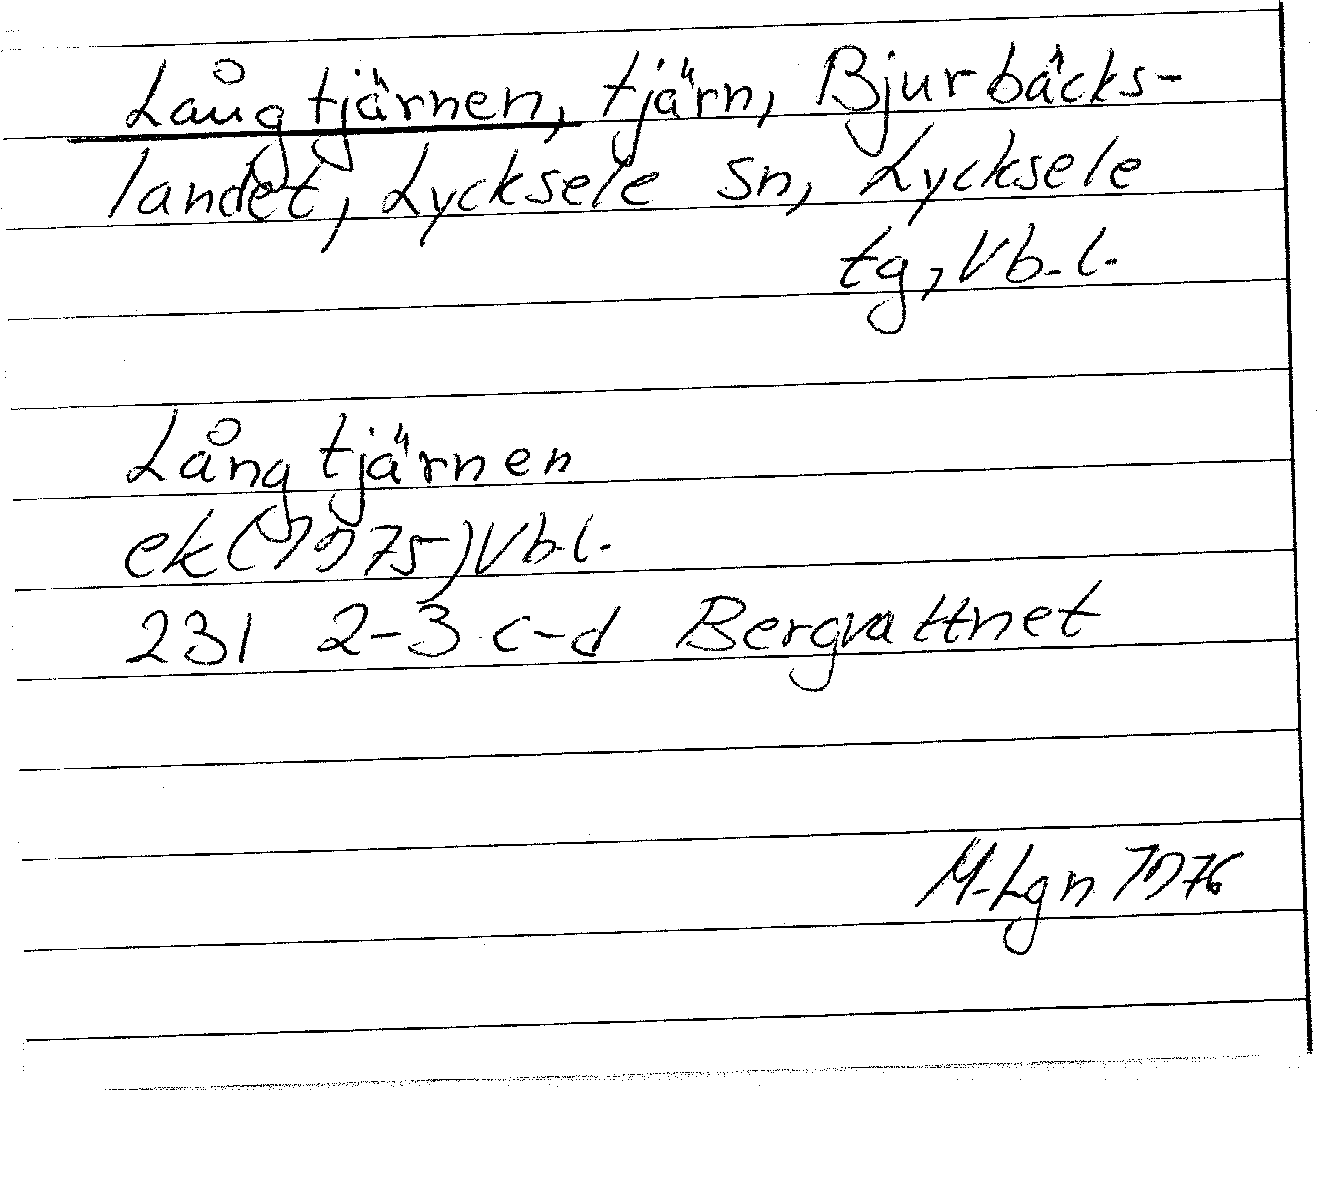 Långtjärnen, tjärn, Bjurbäcks-
landet, Lycksele sn, Lycksele
tg, Vb.l.
Långtjärnen
ek(1975)Vb.l.
23I 2-3 c-d Bergvattnet
M-Lgn 1976